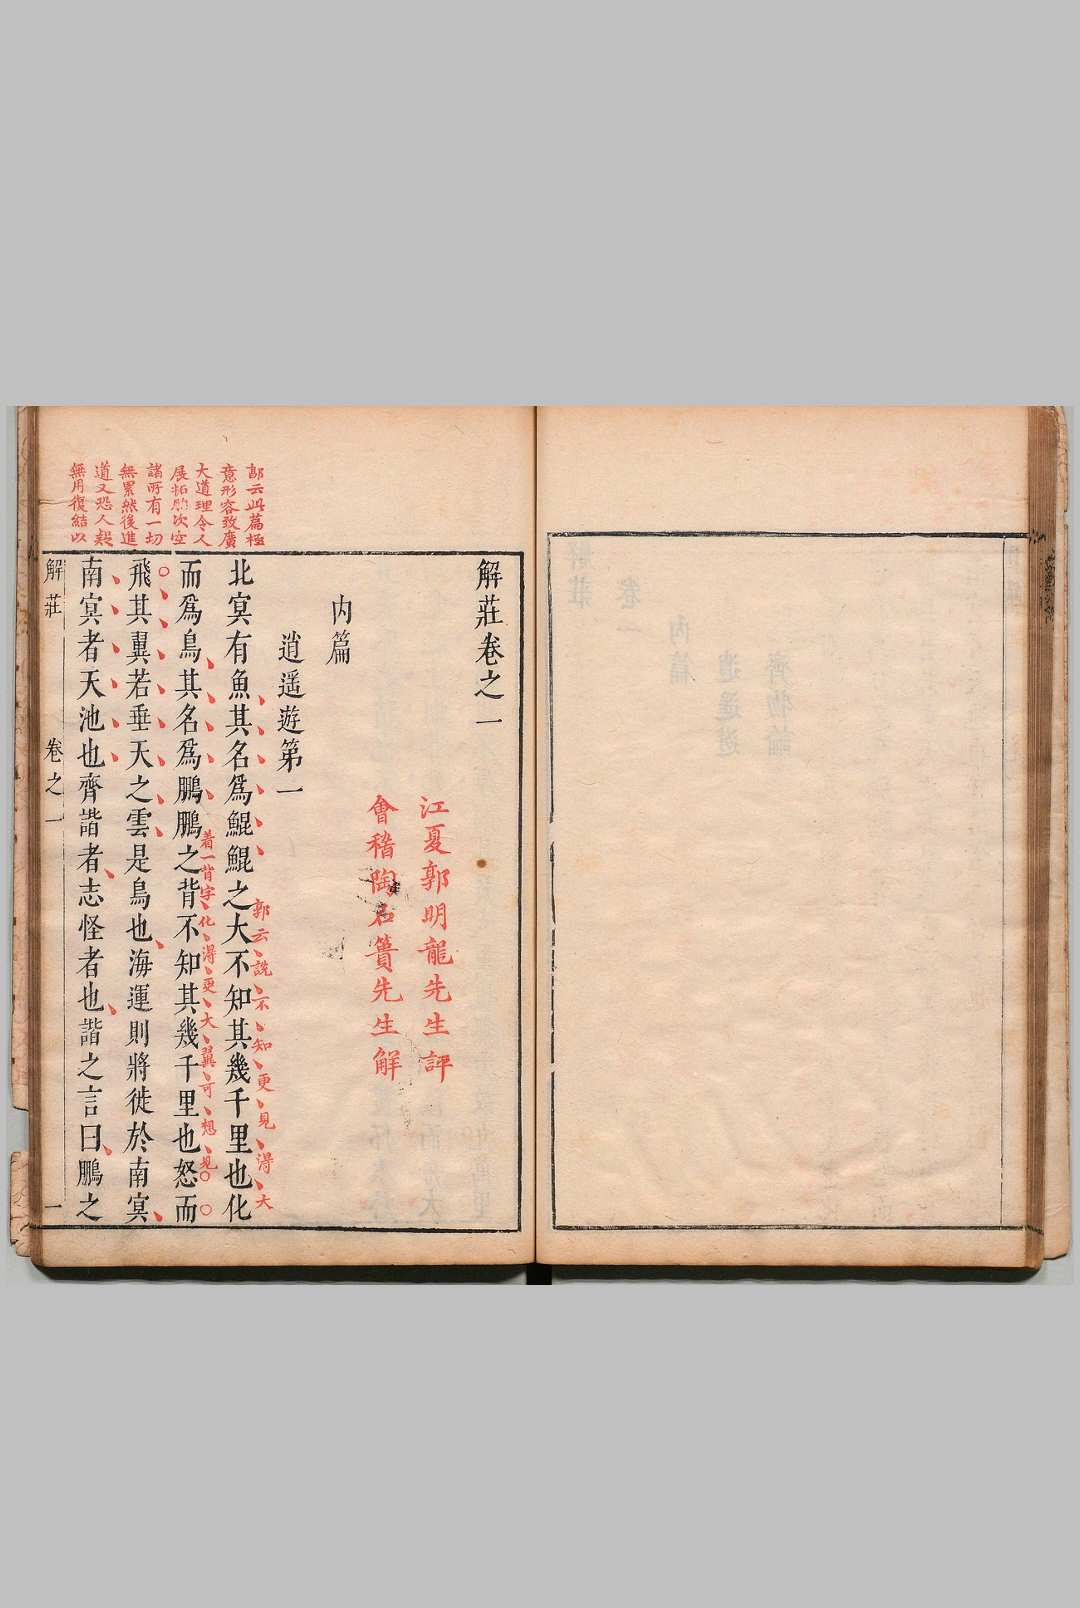 解莊卷之一
江夏郭明龍先生評
會稽陶石簣先生解
內篇
逍遥遊第一
北㝠有魚其名爲鯤鯤之大不知其幾千里也化
郭云說不知更見得大
而爲鳥其名爲鵬鵬之背不知其幾千里也怒而
着一背字化得更大翼可想見
飛其翼若垂天之雲是鳥也海運則將徙於南㝠
南㝠者天池也齊諧者志怪者也諧之言曰鵬之
郭云此篇極
意形容致廣
大道理令人
展拓胸次空
諸所有一切
無累然後進
道又恐人疑
無用復結以
解莊
卷之一
一